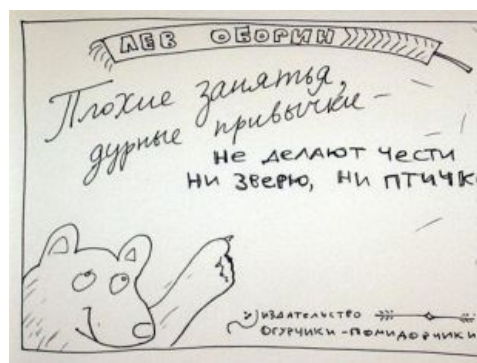 ЛЕВ ОБОРИН
Плохие занятья,
дурные привычки –
не делают чести
ни зверю, ни птичк
издательство
огурчики-помидорчики